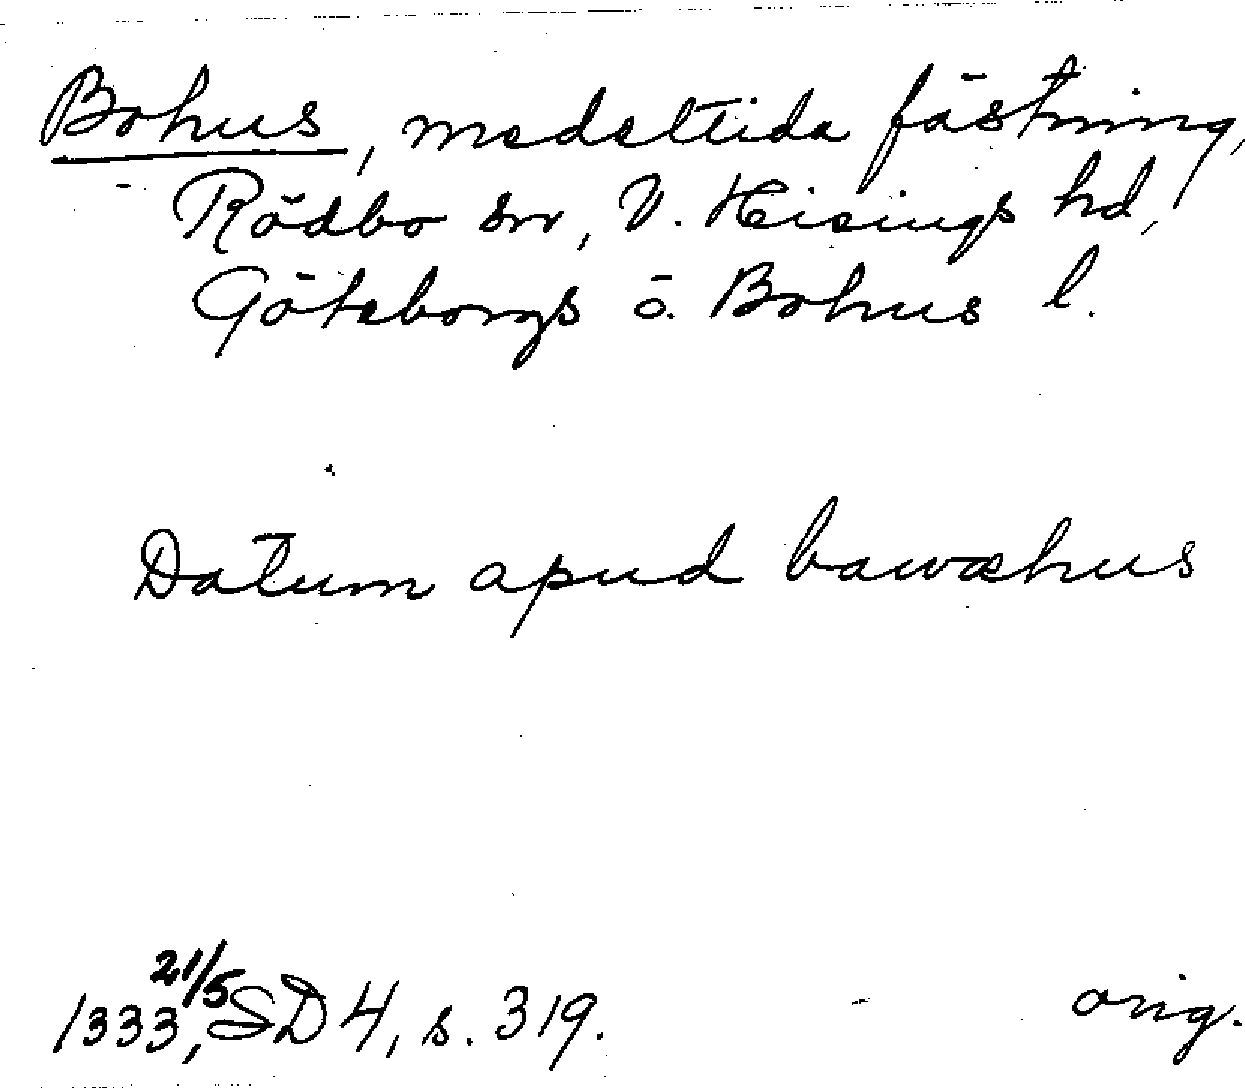 Bohus, medeltida fästning,
Rödbo sn, V. Hisings hd,
Göteborgs o. Bohus l.
Datum apud bawæhus
1333 21/5, SD 4, s. 319. orig.